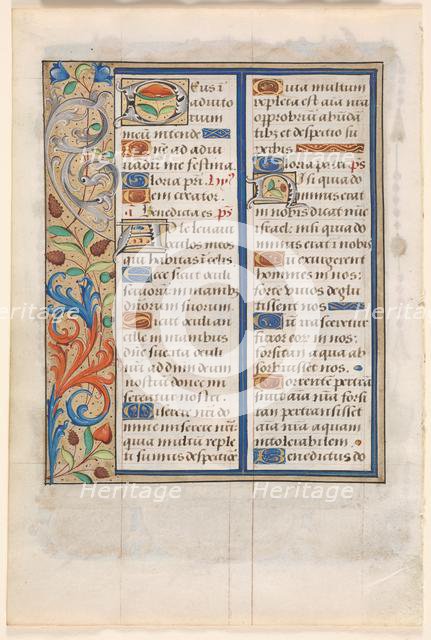 Deus in
adiuto
rium
meū intende
Dn̄e ad adiu
uandū me festina
Gloria pr̄i. hym̄
Memēto creator.
ā Benedicta es. ps
Ad te leuaui
oculos meos
qui habitas in celis
Ecce sicut oculi
seruorum in manibus
dn̄orum suorum
Sicut oculi an
cille in manibus
dn̄e sue ita oculi
nostri ad dn̄m deum
nostrū donec mi
sereatur nostri
Miserere nr̄i do
mine miserere nr̄i
quia multū reple
ti sumus despectiōe
Quia multum
repleta est aīa nr̄a
opprobriū abūdā
tibꝫ et despectio su
perbis
Gloria patri ps
Nisi quia do
minus erat
in nobis dicat nūc
israel nisi quia do
minus erat ī nobis
Cū exurgerent
homines in nos
forte viuos deglu
tissent nos
Cū irasceretur
furor eorū in nos
forsitan aqua ab
sorbuisset nos
Torrentē pertrā
siuit aīa nr̄a forsi
tan pertransisset
aīa nr̄a aquam
intolerabilem
Benedictus do
Heritage
Heritage
Heritage
Heritage
Heritage
Heritage
Heritage